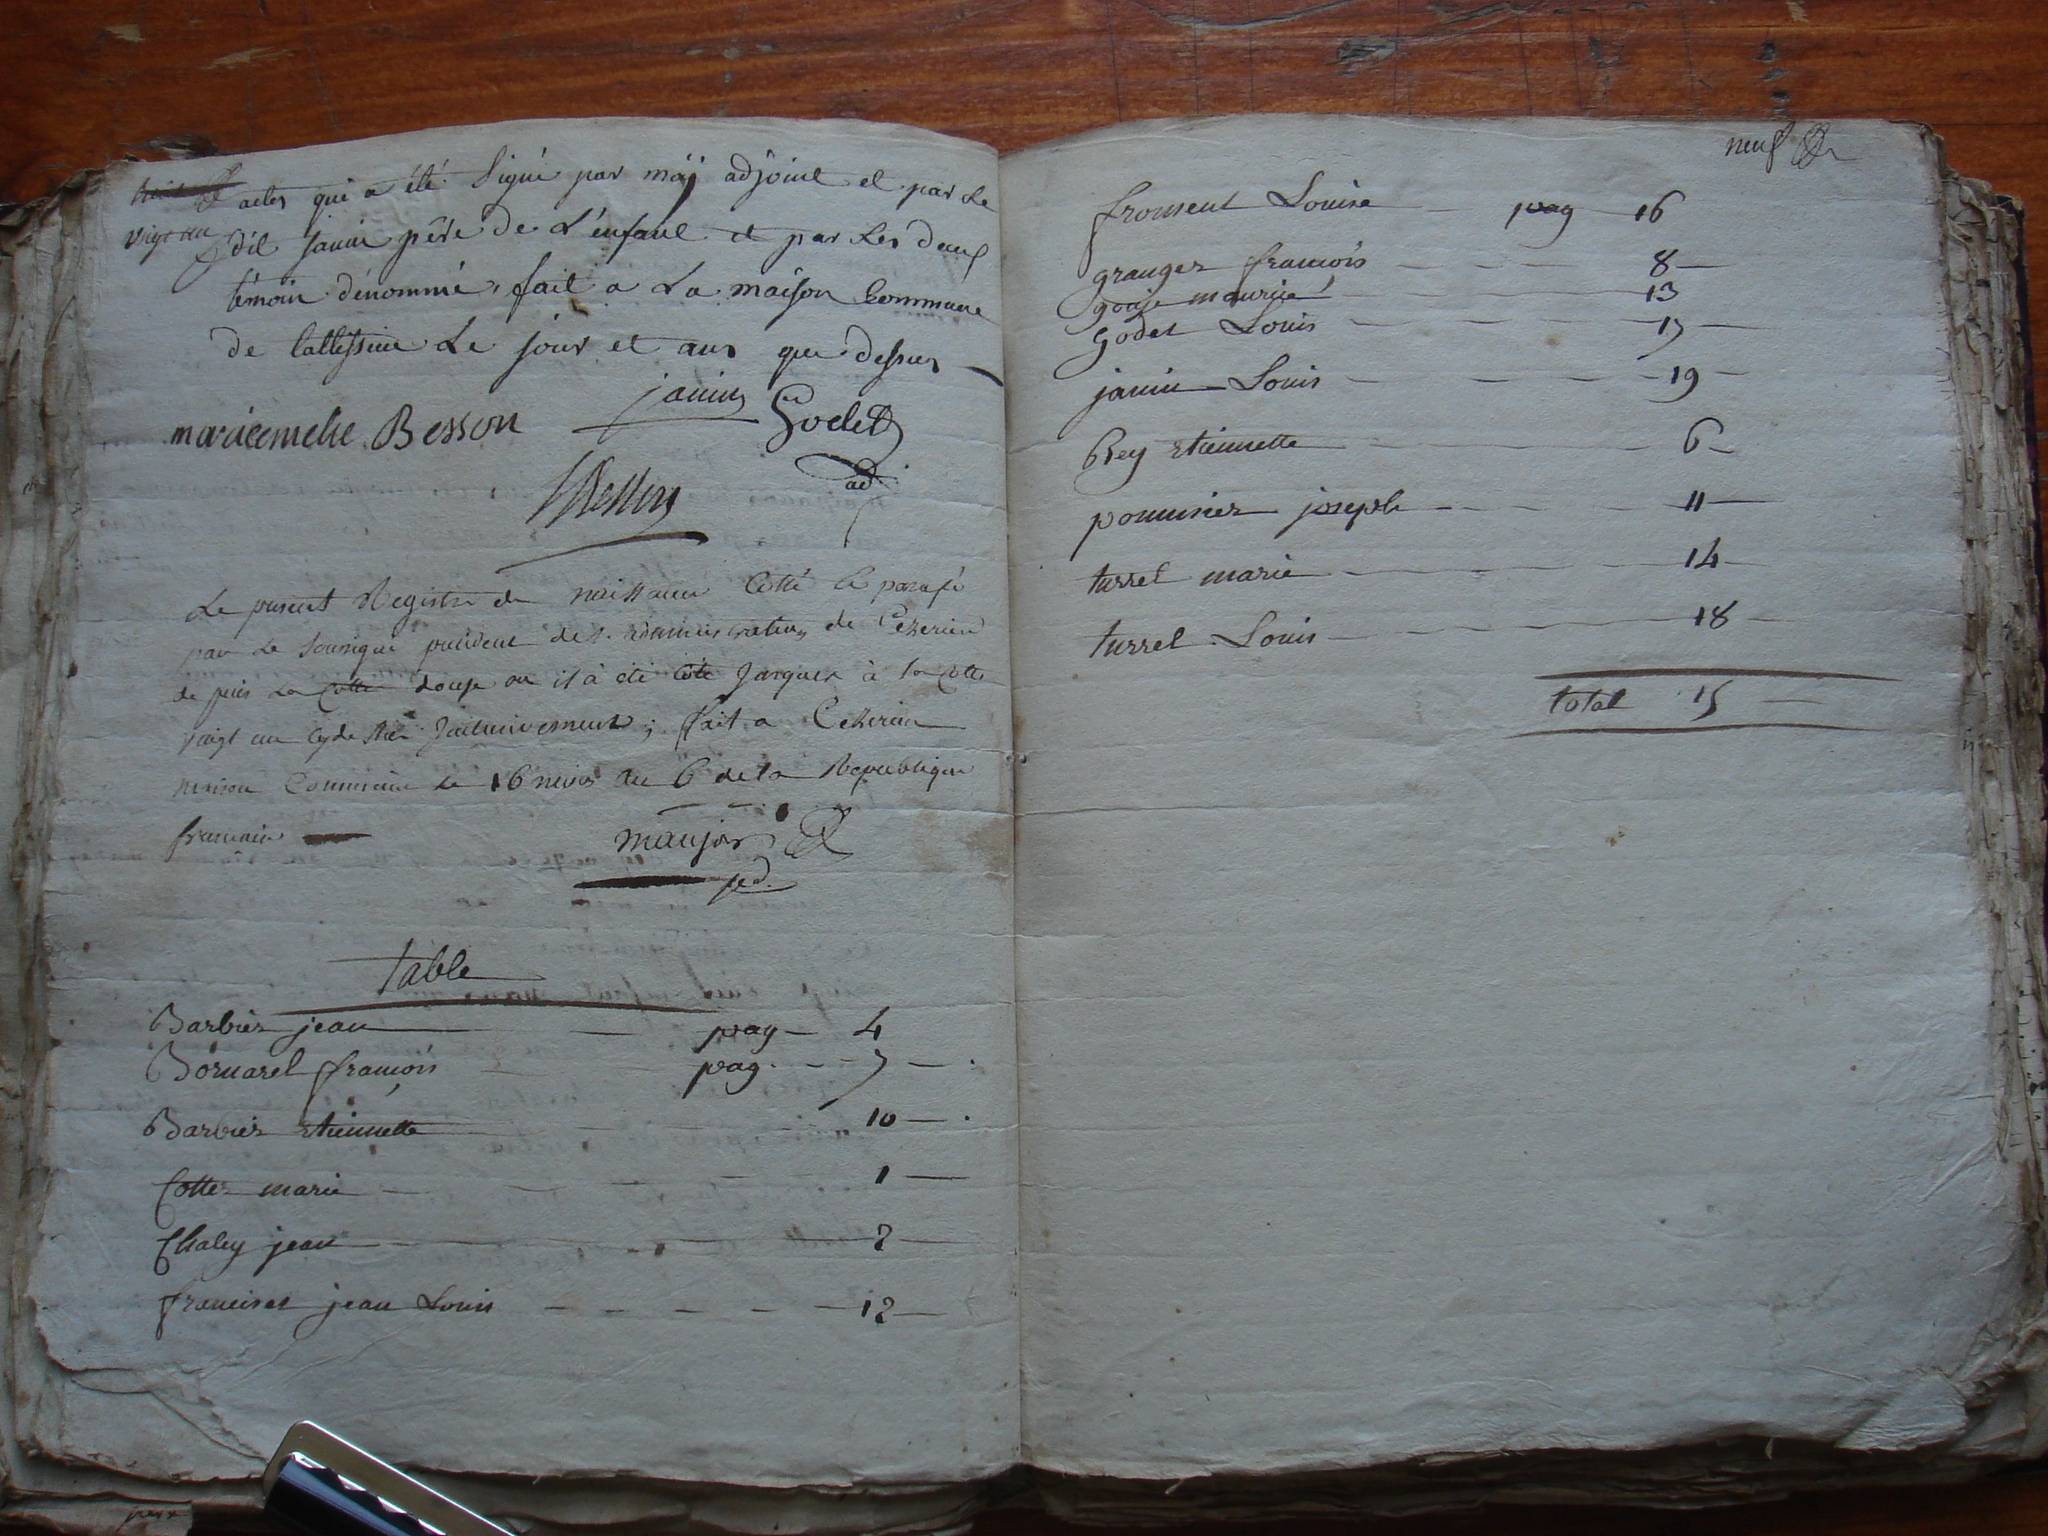 vigt un
actes qui a été Signé par mái adjoint et par Le
dit janin pêre de L'enfant et par Les deux
témoin dénommé, fait a La maison Commune
de Le jour et ans que dessus
janin
marieemelie Besson
Godet
ad
Besson
Le present Registre de naissance Cotté et parafé
par Le Sousigné president de l'administration de Ceÿzerieu
de puis La Cotte douze ou il à été Coté Jusques à la Cotte
vaigt un Inclusivement ; fait a Ceÿzerieu
maison Commune Le 16 nivos an 6 de la Republique
francaise
maujot
ped.
table
Barbier jean pag 4
Bornarel francois pag. 7
Barbier etiennette 10
Cottez marie 1
Chaley jean 2
francinet jean Louis 12
neuf
froment Louise pag 16
granger francois 8
goaje maurice 13
Godet Louis 17
janin Louis 19
Pey etiennette 6
pommier joseph 11
turrel marie 14
turrel Louis 18
total 15